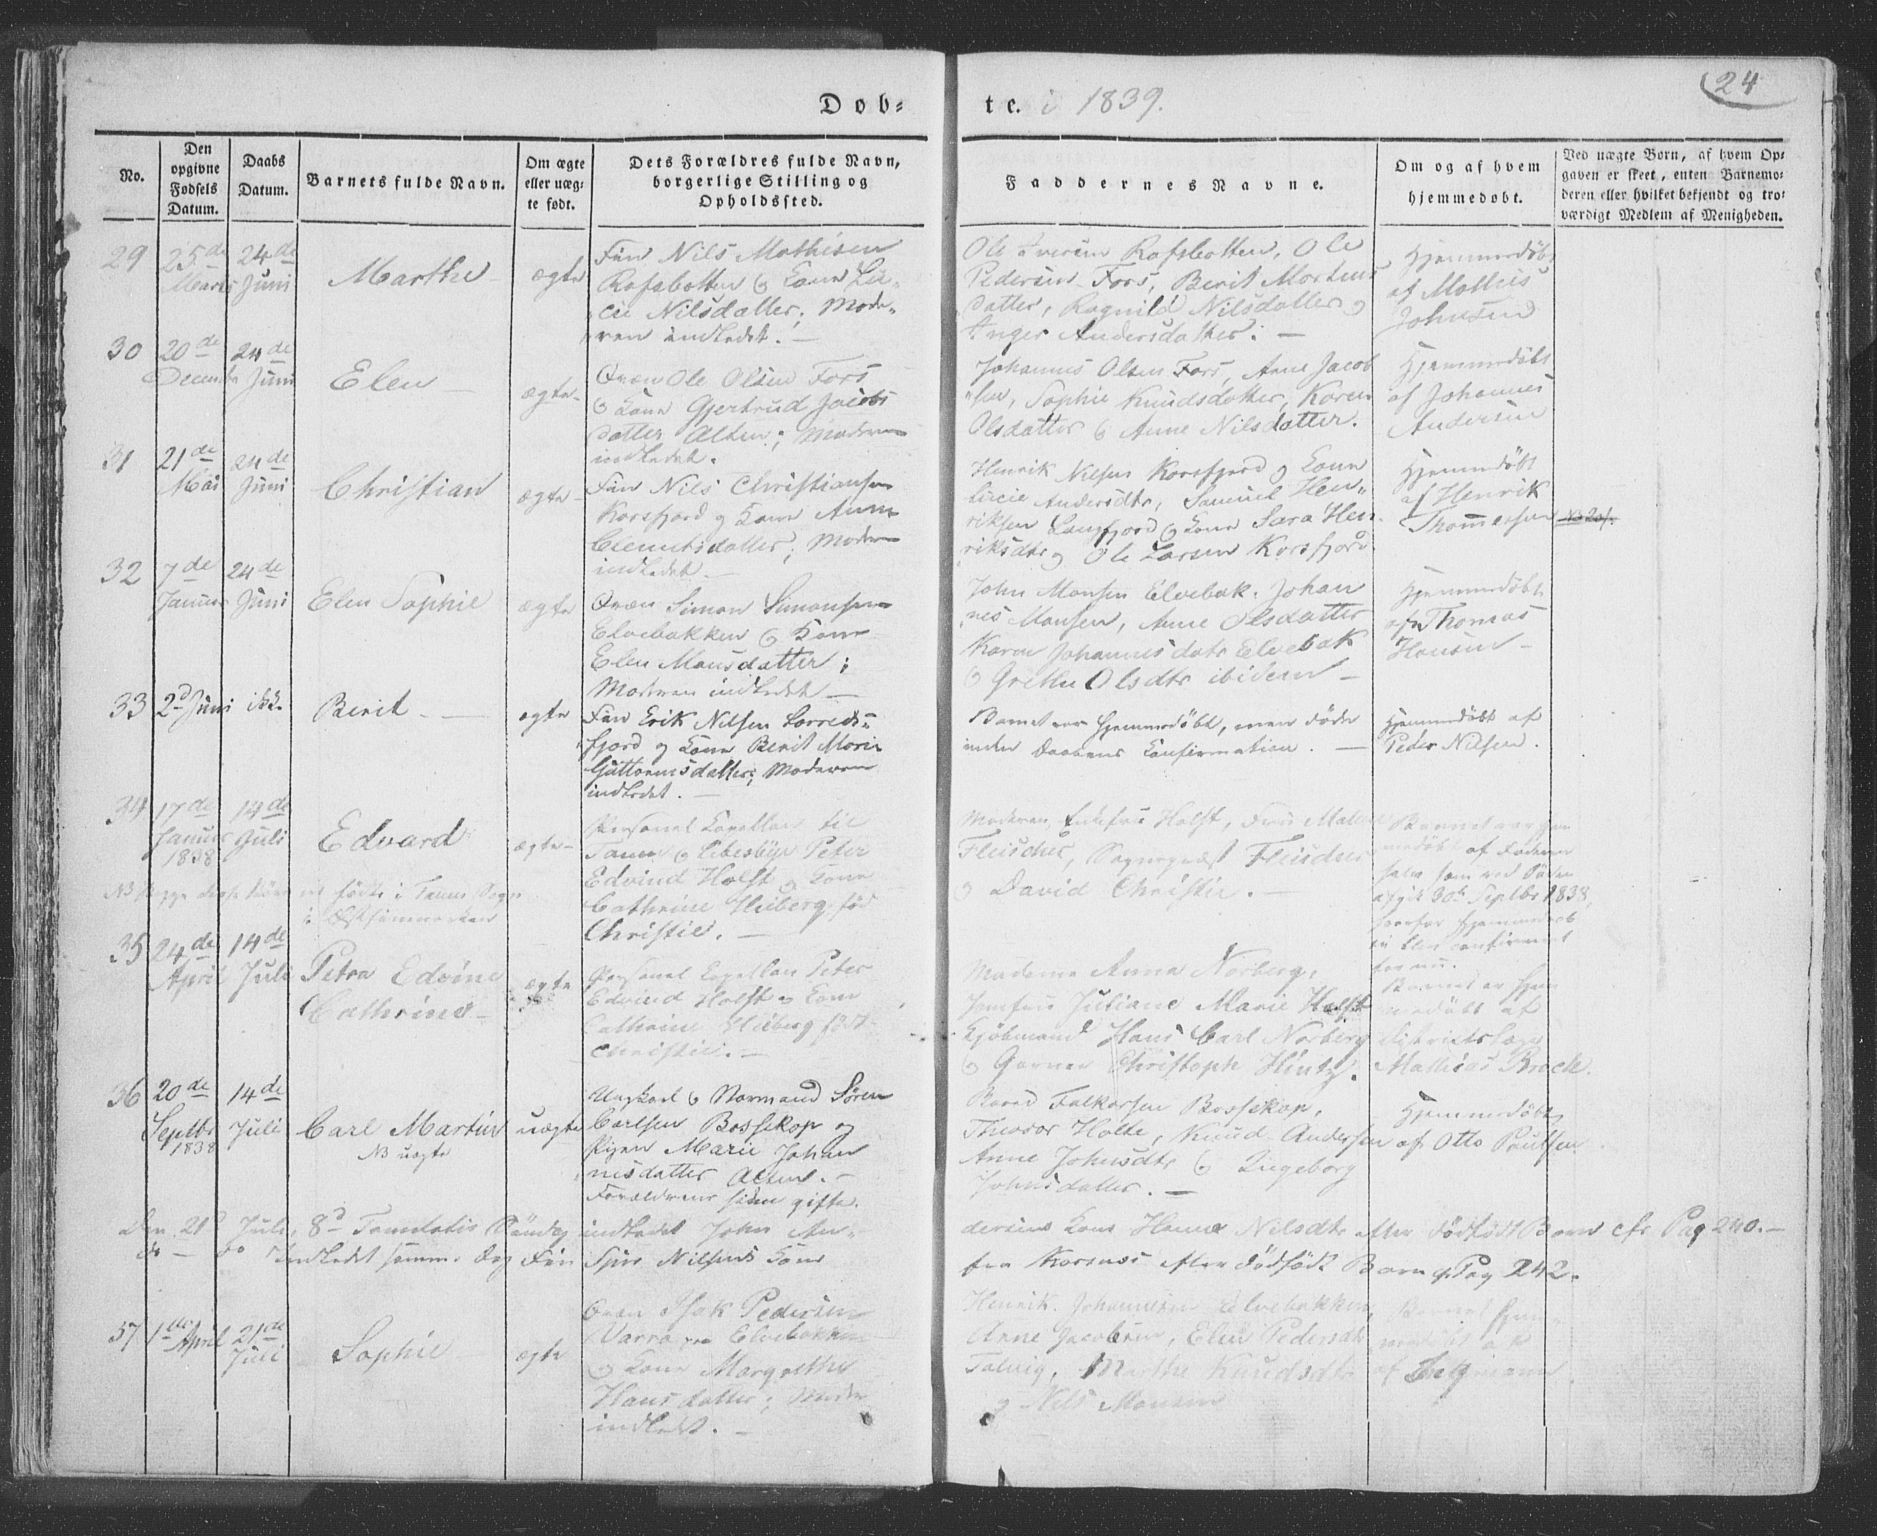 24
Dob-
te. i 1839.
No.
Den
opgivne
Fødsels
Datum.
Daabs
Datum.
Barnets fulde Navn.
Om ægte
eller uæg-
te født.
Dets Forældres fulde Navn,
borgerlige Stilling og
Opholdssted.
Faddernes Navne.
Om og af hvem
hjemmedøbt.
Ved uægte Børn, af hvem Op-
gaven er skeet, enten Barnemo-
deren eller hvilket bekjendt og tro-
værdigt Medlem af Menigheden.
29
25de
Marts
24de
Juni
Marthe
ægte
Fin Nils Mathisen
Rafsbotten og Kone Lu-
cie Nilsdatter; Mode-
ren indledet. —
Ole Iversen Rafsbotten, Ole
Pedersen Fors, Berit Mortens
datter, Ragnild Nilsdatter og
Inger Andersdatter. —
Hjemmedøbt
af Mathis
Johnsen
30
20de
December
24de
Juni
Elen
ægte
Qvæn Ole Olsen Fors
og Kone Gjertrud Jacobs
datter Alten; Moderen
indledet.
Johannes Olsen Fors, Anne Jacob
sen, Sophie Knudsdatter, Karen
Olsdatter og Anne Nilsdatter.
Hjemmedøbt
af Johannes
Andersen
31
21de
Mai
24de
Juni
Christian
ægte
Fin Nils Christiansen
Korsfjord og Kone Anne
Clemetsdatter; Moderen
indledet —
Henrik Nilsen Korsfjord og Kone
Lucie Andersdtr, Samuel Hen-
riksen Langfjord og Kone Sara Hen
riksdtr og Ole Larsen Korsfjord.
Hjemmedøbt
af Henrik
Thommassen
32
7de
Januar
24de
Juni
Elen Sophie
ægte
Qvæn Simon Simonsen
Elvebakken og Kone
Elen Monsdatter;
Moderen indledet —
John Monsen Elvebak. Johan
nes Monsen, Anne Olsdatter
Karen Johannesdatr Elvebak
og Grethe Olsdtr ibidem —
Hjemmedøbt
af Thomas
Hansen —
33
2d Juni
Berit —
ægte
Fin Erik Nilsen
fjord og Kone Berit Marie
Guttormsdatter; Moderen
indledet. —
Barnet var hjemmedøbt, men døde
inden Daabens Confirmation. —
Hjemmedøbt af
Peder Nilsen.
34
17de
Januar
1838
14de
Juli
Edvard
ægte
Personel Capellan til
Tanen og Lebesbye Peter
Edvind Holst og Kone
Cathrine Heiberg fød
Christie. —
Moderen, Enkefru Holst,
Fleischer, Sogneprest Fleischer
og David Christie. —
Barnet var hjem
medøbt af Faderen
selv som ved Døden
afgik 30te Septbr 1838,
hvorfor Hjemmedaab
en blev confirmeret
NB begge disse Børn ere fødte i Tanens Sogn
i Østfinmarken
35
24de
April
14de
Juli
Petra Edvine
Cathrine —
ægte
Personel Capellan Peter
Edvind Holst og Kone
Cathrine Heiberg født
Christie. —
Madame Anna Norberg,
Jomfru Juliane Marie Holst
Kjøbmand Hans Carl Norberg
og Garver Christoph Hintz.
Barnet er hjem
medøbt af
Districtslæge
Mathias Brock.
36
20de
Septbr
1838
14de
Juli
Carl Martin
NB uægte
uægte
Ungkarl og Normand Søren
Carlsen Bossekop og
Pigen Marie Johan
nesdatter Alten. —
Forældrene siden gifte.
Baard Falkorsen Bossekop,
Theodor Holte, Knud Andersen
Anne Johnsdtr og Ingeborg
Johnsdatter. —
Hjemmedøbt
af Otto Poulsen
Den 21d Juli, 8d Trinitatis Søndag indledet John An-
dersens Kone Hanna Nilsdtr efter dødfødt Barn cfr Pag 240. —
do — do indledet samme Dag Fin Siur Nilsens Kone
fra Korsnes efter dødfødt Barn cfr Pag 242.
37
1de
April
21de
Juli
Sophie
ægte
Qvæn Isak Pedersen
Varra fra Elvebakken
og Kone Margrethe
Hansdatter; Moder
indledt. —
Henrik Johannesen Elvebakken,
Anne Jacobsen, Elen Pedersdtr
Talvig, Marthe Knudsdtr
og Nils Monsen
Barnet hjem-
medøbt